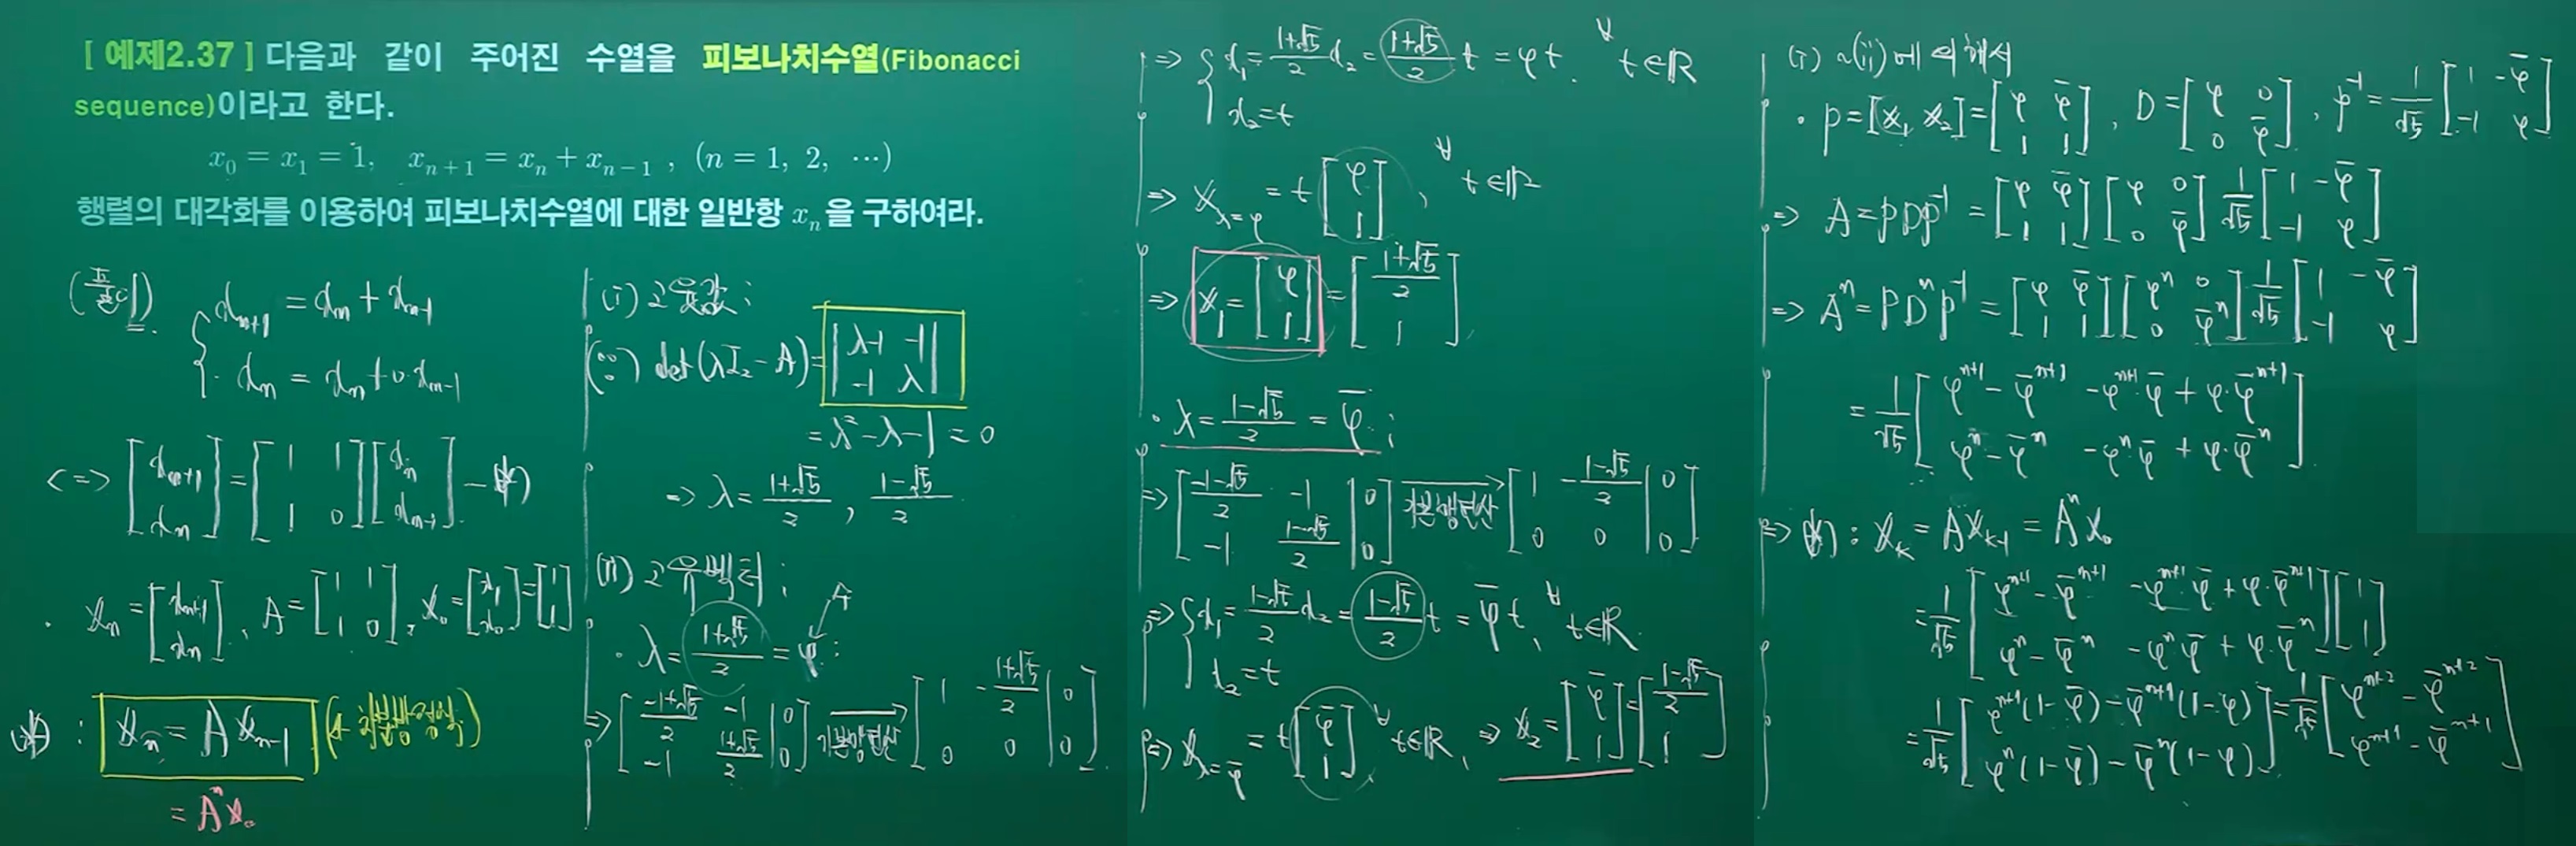 [ 예제2.37 ] 다음과 같이 주어진 수열을 피보나치수열(Fibonacci
sequence)이라고 한다.
x₀ = x₁ = 1, xₙ₊₁ = xₙ + xₙ₋₁ , (n = 1, 2, ⋯)
행렬의 대각화를 이용하여 피보나치수열에 대한 일반항 xₙ 을 구하여라.
(풀이)
{ xₙ₊₁ = xₙ + xₙ₋₁
xₙ = xₙ + 0·xₙ₋₁
<=> [xₙ₊₁; xₙ] = [1 1; 1 0][xₙ; xₙ₋₁] — (*)
· 𝕩ₙ = [xₙ₊₁; xₙ], A = [1 1; 1 0], 𝕩₀ = [x₁; x₀] = [1; 1]
(*) : 𝕩ₙ = A𝕩ₙ₋₁
= Aⁿ𝕩₀
(i) 고유값 ;
(∵) det(λI₂ - A) = |λ-1 -1; -1 λ|
= λ² - λ - 1 = 0
=> λ = (1+√5)/2 , (1-√5)/2
(ii) 고유벡터 ;
· λ = (1+√5)/2 = φ ;
=> [(-1+√5)/2 -1 | 0; -1 (1+√5)/2 | 0] 기본행연산→ [1 -(1+√5)/2 | 0; 0 0 | 0]
=> { x₁ = (1+√5)/2 x₂ = (1+√5)/2 t = φt. ∀ t∈ℝ
x₂ = t
=> 𝕩_λ=φ = t[φ; 1], ∀ t∈ℝ
=> 𝕩₁ = [φ; 1] = [(1+√5)/2; 1]
· λ = (1-√5)/2 = φ̄ ;
=> [(-1-√5)/2 -1 | 0; -1 (1-√5)/2 | 0] 기본행연산→ [1 -(1-√5)/2 | 0; 0 0 | 0]
=> { x₁ = (1-√5)/2 x₂ = (1-√5)/2 t = φ̄t, ∀ t∈ℝ.
x₂ = t
=> 𝕩_λ=φ̄ = t[φ̄; 1] ∀ t∈ℝ, => 𝕩₂ = [φ̄; 1] = [(1-√5)/2; 1]
(i) ~ (ii)에 의해서
· P = [𝕩₁ 𝕩₂] = [φ φ̄; 1 1], D = [φ 0; 0 φ̄], P⁻¹ = 1/√5 [1 -φ̄; -1 φ]
=> A = PDP⁻¹ = [φ φ̄; 1 1][φ 0; 0 φ̄] 1/√5 [1 -φ̄; -1 φ]
=> Aⁿ = PDⁿP⁻¹ = [φ φ̄; 1 1][φⁿ 0; 0 φ̄ⁿ] 1/√5 [1 -φ̄; -1 φ]
= 1/√5 [φⁿ⁺¹ - φ̄ⁿ⁺¹ -φⁿ⁺¹·φ̄ + φ·φ̄ⁿ⁺¹; φⁿ - φ̄ⁿ -φⁿ·φ̄ + φ·φ̄ⁿ]
=> (*) : 𝕩ₖ = A𝕩ₖ₋₁ = Aⁿ𝕩₀
= 1/√5 [φⁿ⁺¹ - φ̄ⁿ⁺¹ -φⁿ⁺¹·φ̄ + φ·φ̄ⁿ⁺¹; φⁿ - φ̄ⁿ -φⁿ·φ̄ + φ·φ̄ⁿ][1; 1]
= 1/√5 [φⁿ⁺¹(1-φ̄) - φ̄ⁿ⁺¹(1-φ); φⁿ(1-φ̄) - φ̄ⁿ(1-φ)] = 1/√5 [φⁿ⁺² - φ̄ⁿ⁺²; φⁿ⁺¹ - φ̄ⁿ⁺¹]